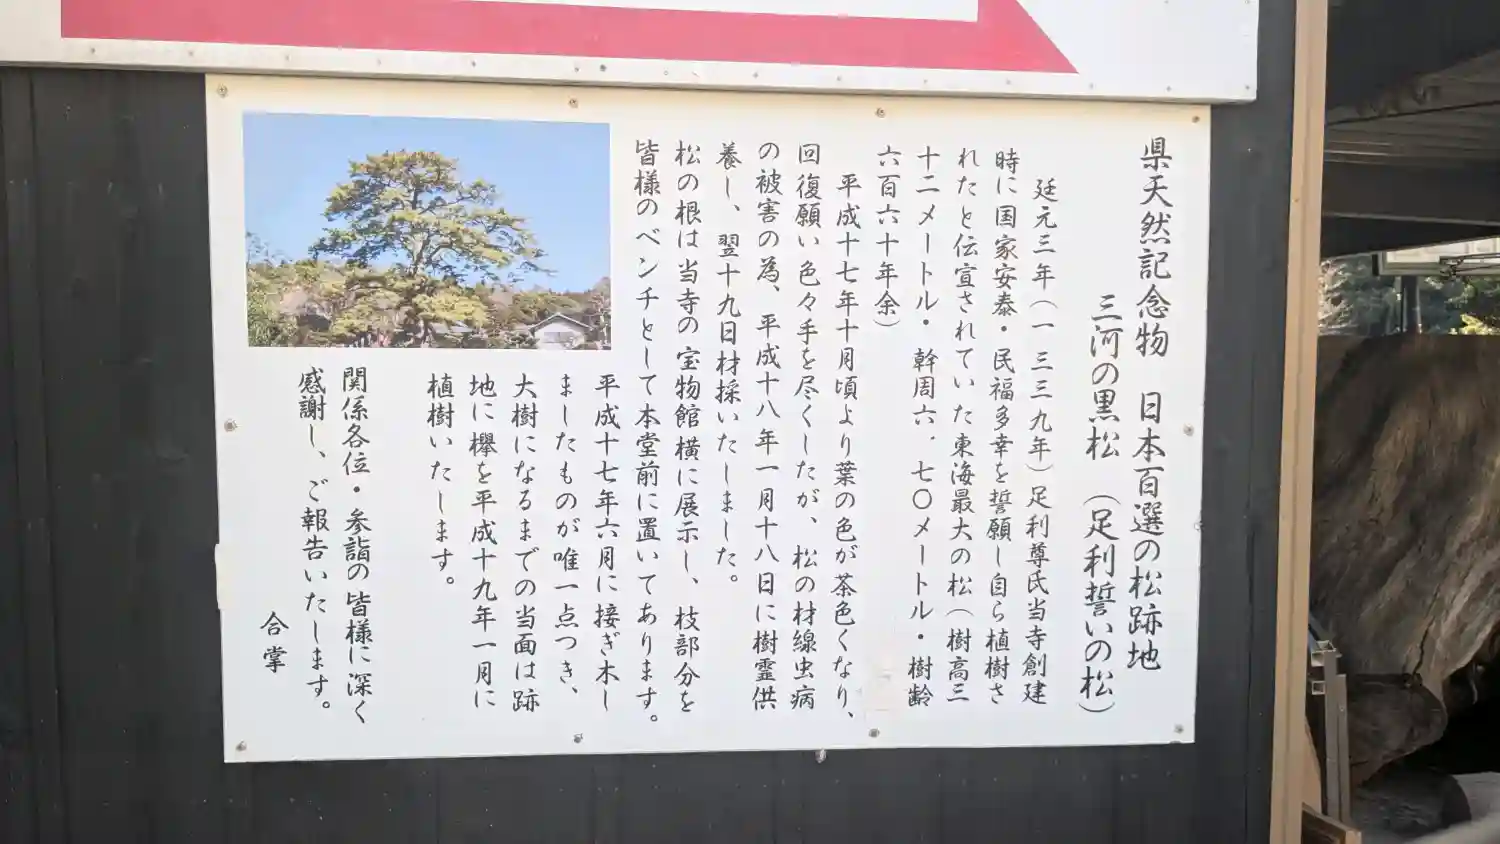 県天然記念物　日本百選の松跡地
三河の黒松　（足利誓いの松）
延元三年（一三三九年）足利尊氏当寺創建
時に国家安泰・民福多幸を誓願し自ら植樹さ
れたと伝宣されていた東海最大の松（樹高三
十二メートル・幹周六．七〇メートル・樹齢
六百六十年余）
平成十七年十月頃より葉の色が茶色くなり、
回復願い色々手を尽くしたが、松の材線虫病
の被害の為、平成十八年一月十八日に樹霊供
養し、翌十九日材採いたしました。
松の根は当寺の宝物館横に展示し、枝部分を
皆様のベンチとして本堂前に置いてあります。
平成十七年六月に接ぎ木し
ましたものが唯一点つき、
大樹になるまでの当面は跡
地に欅を平成十九年一月に
植樹いたします。
関係各位・参詣の皆様に深く
感謝し、ご報告いたします。
合掌